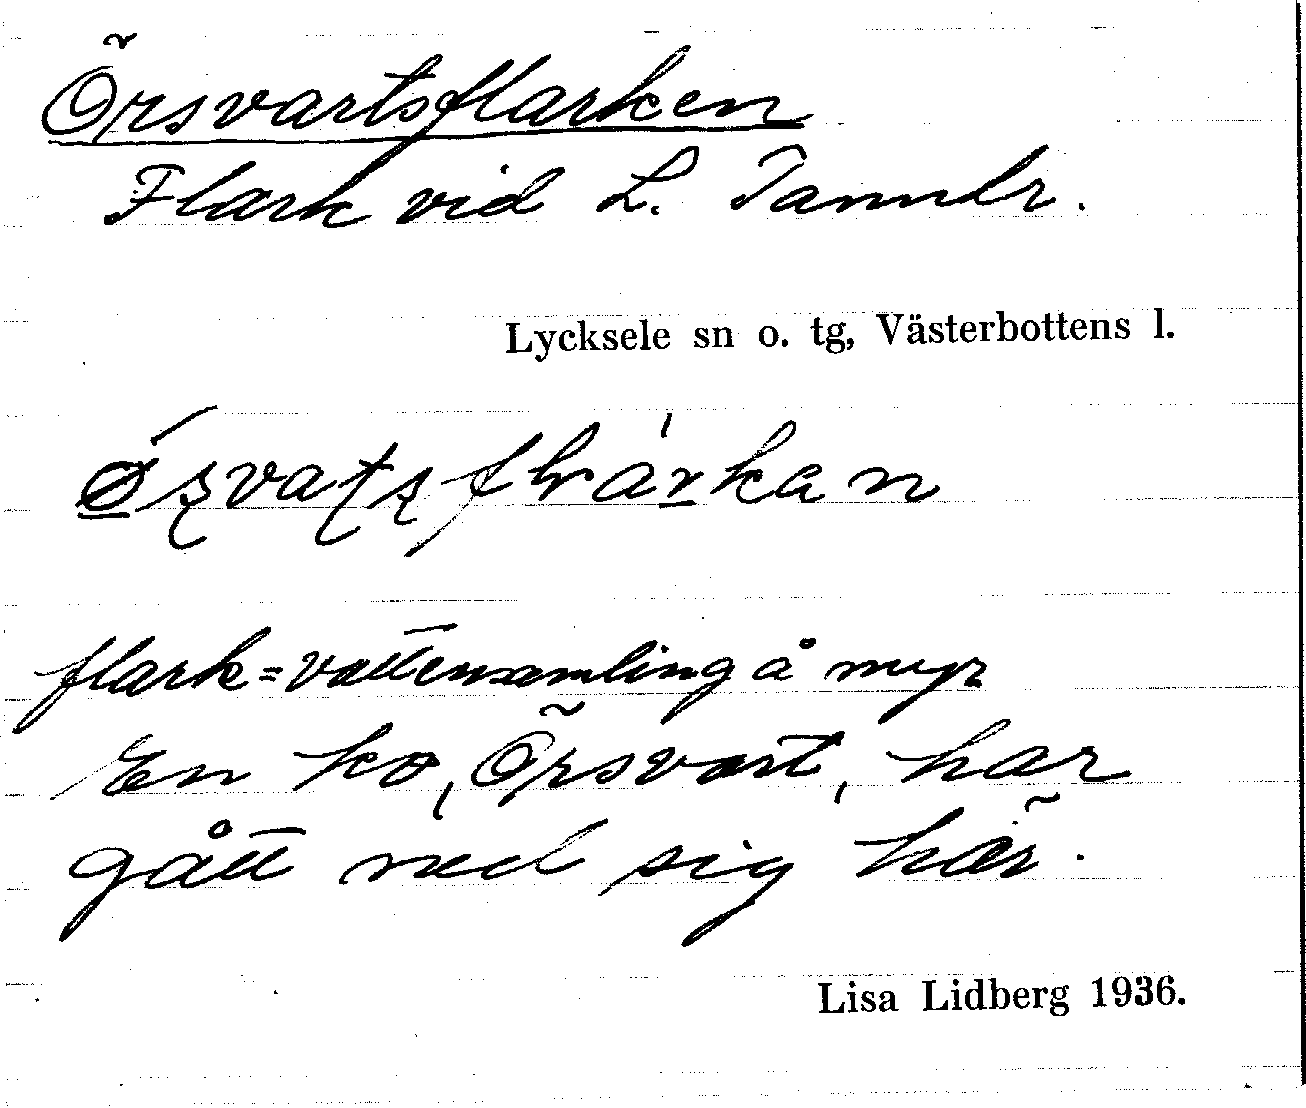 Örsvartsflarken
Flark vid L. Tanndr.
Lycksele sn o. tg, Västerbottens l.
flark = vattensamling å myr
En ko, Örsvart, har
gått ned sig här.
Lisa Lidberg 1936.